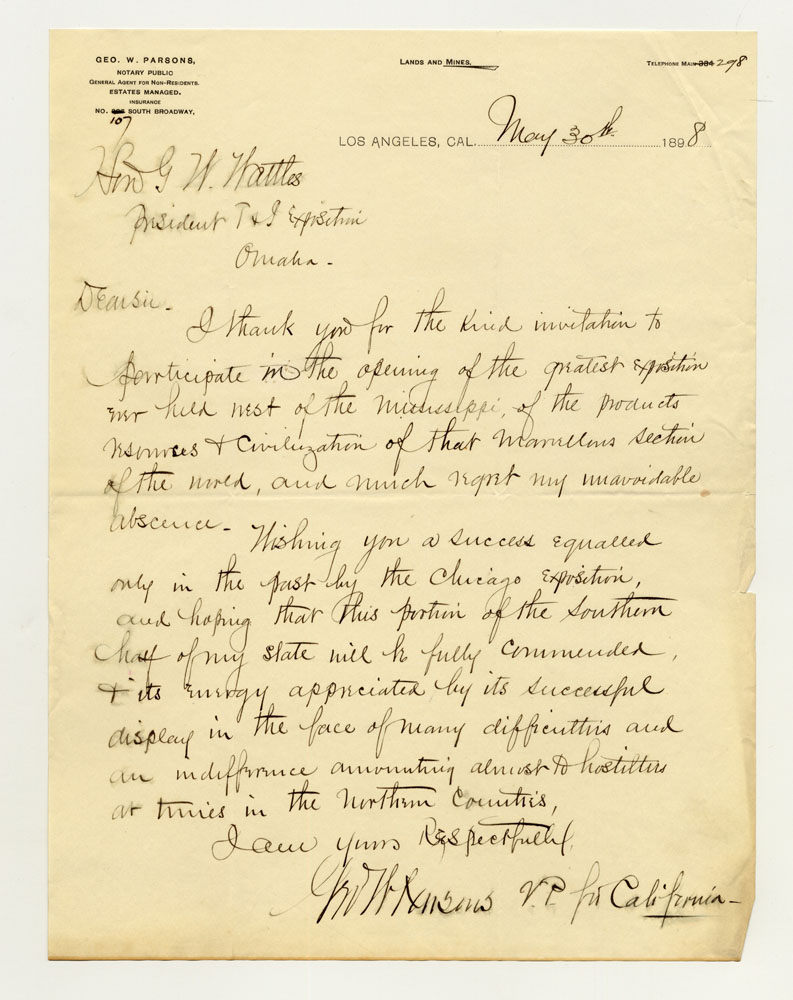 GEO. W. PARSONS,
NOTARY PUBLIC
GENERAL AGENT FOR NON-RESIDENTS.
ESTATES MANAGED.
INSURANCE
NO. SOUTH BROADWAY,
107
LANDS AND MINES,
TELEPHONE MAIN 298
LOS ANGELES, CAL. May 30th 1898
Hon G W. Wattles
President T & I Exposition
Omaha -
Dear Sir -
I thank you for the kind invitation to
participate in the opening of the greatest exposition
ever held west of the Mississippi, of the products
resources & civilization of that marvellous section
of the world, and much regret my unavoidable
abscence - Wishing you a success equalled
only in the past by the Chicago Exposition,
and hoping that this portion of the southern
half of my state will be fully commended,
& its energy appreciated by its successful
display in the face of many difficulties and
an indifference amounting almost to
at times in the Northern Counties,
I am yours Respectfully
Geo W Parsons V.P. for California -